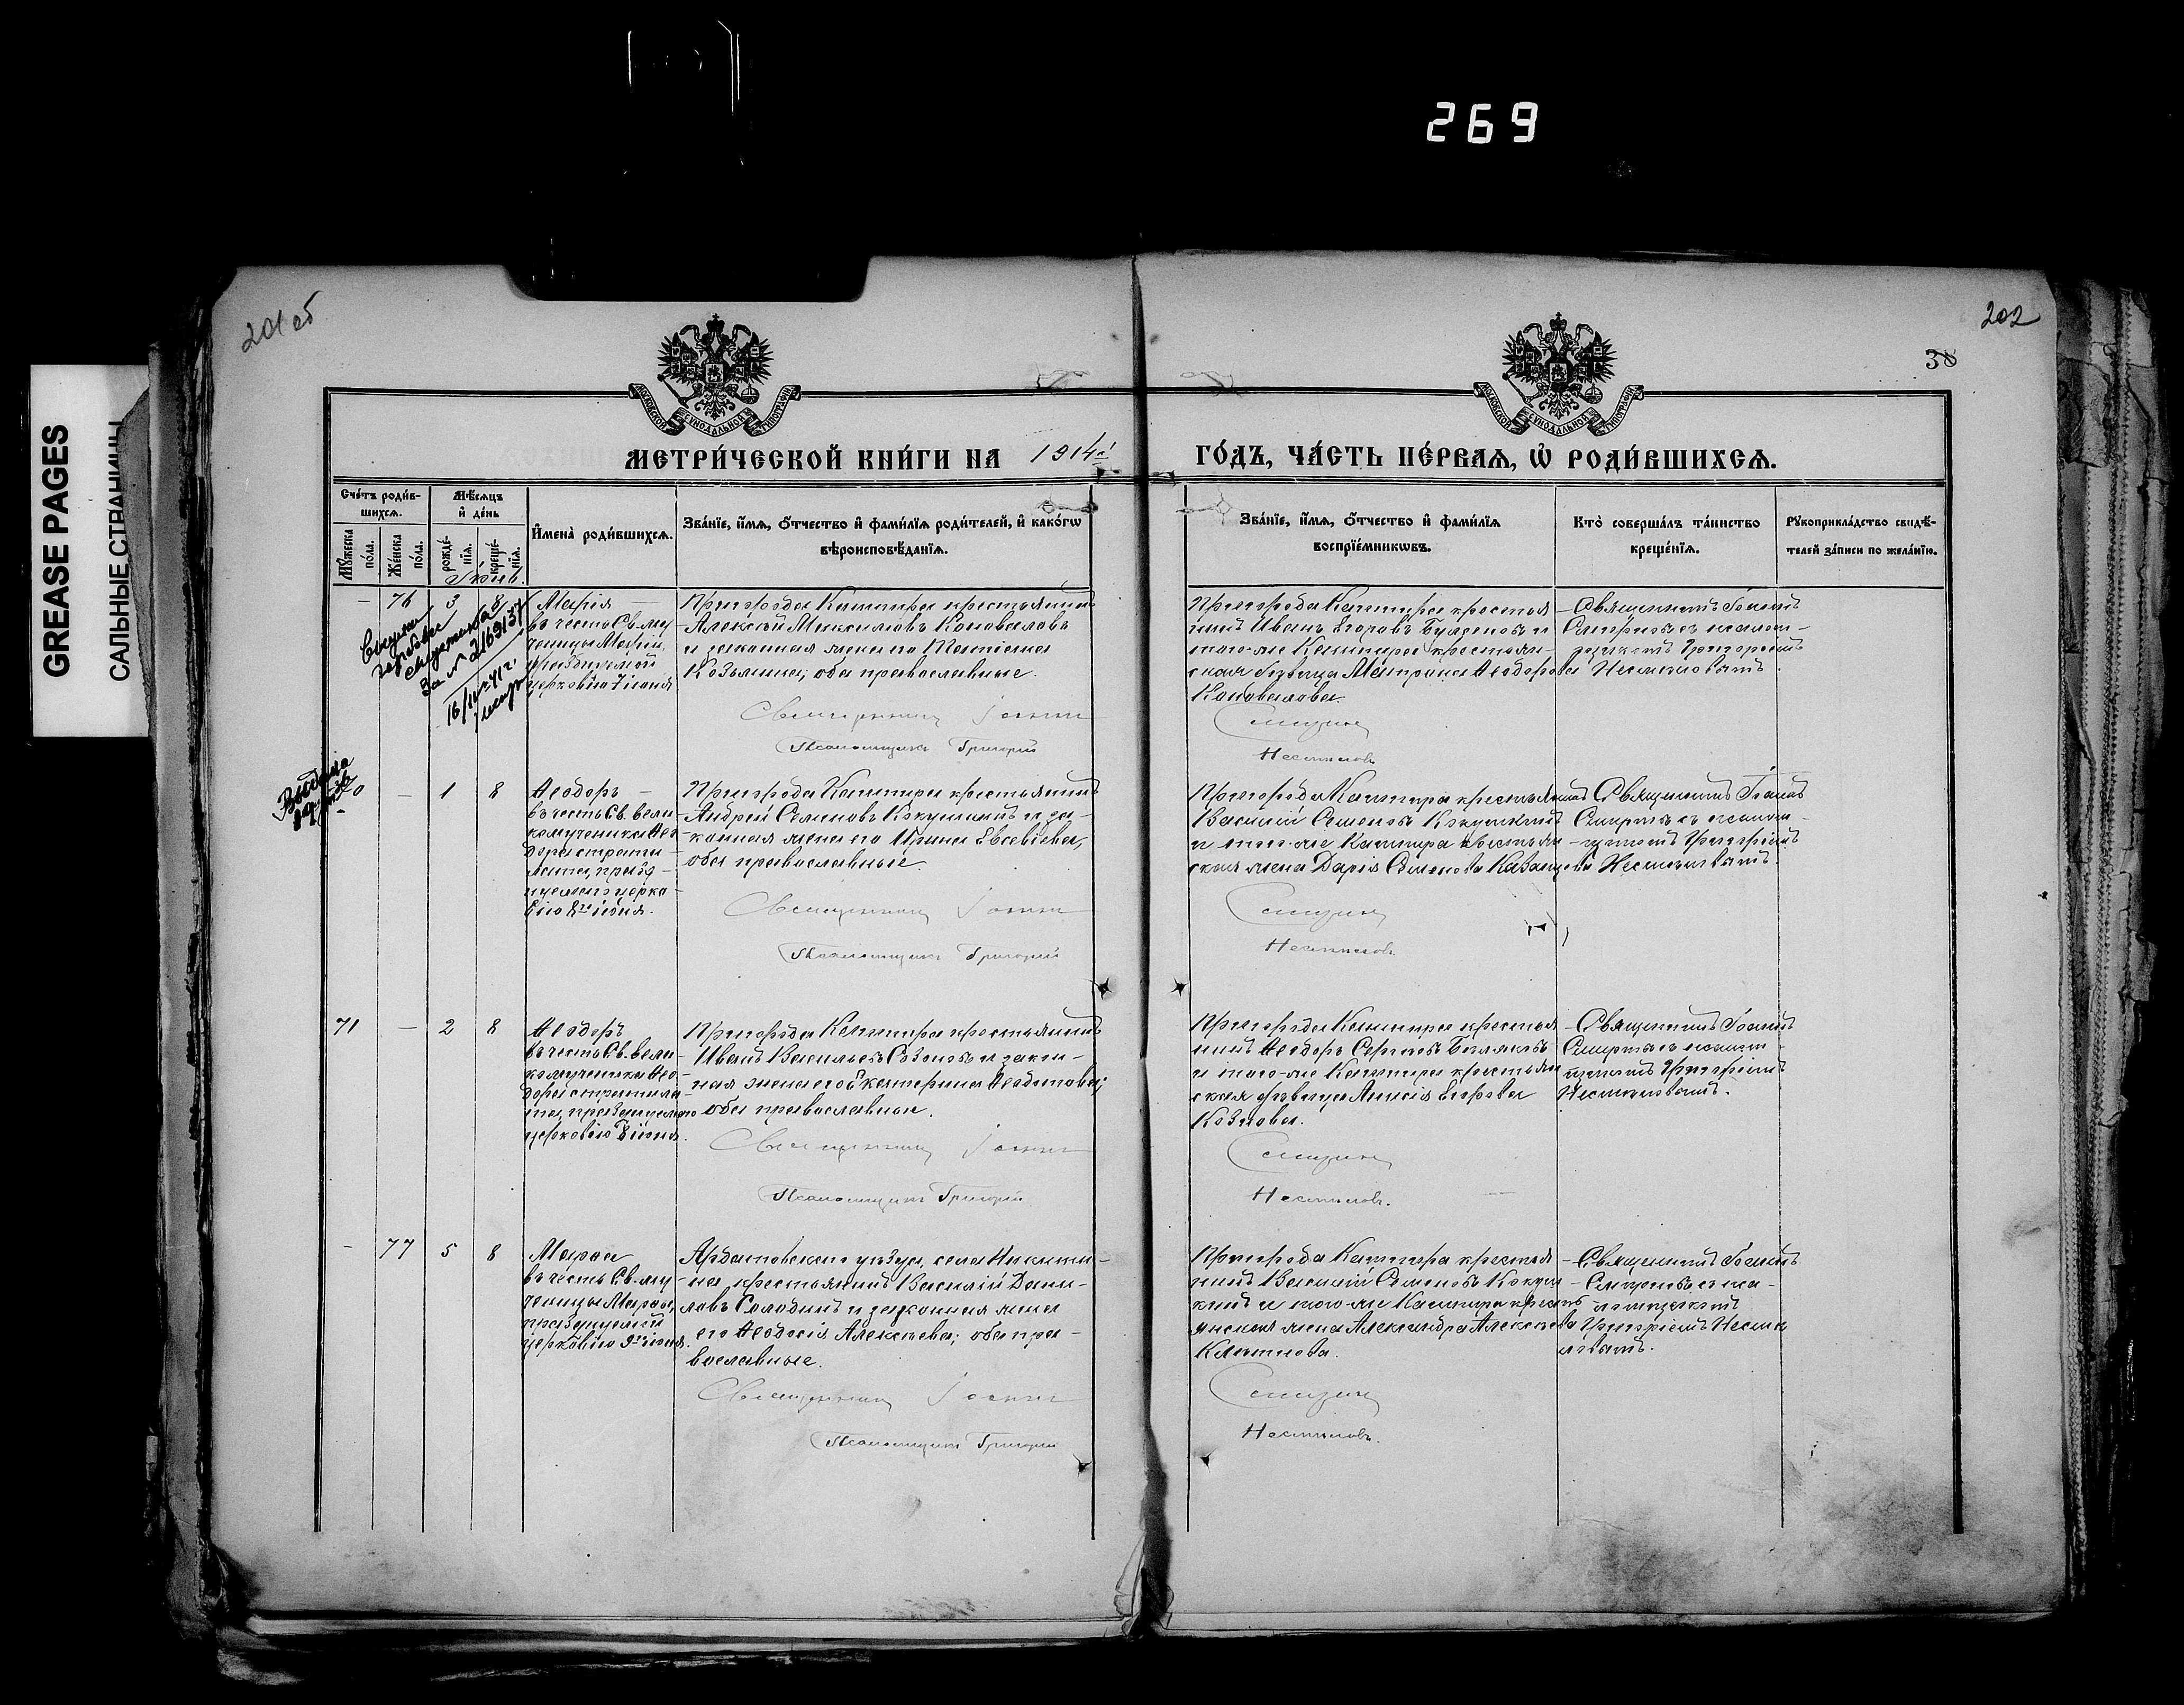 269
GREASE PAGES
САЛЬНЫЕ СТРАНИЦЫ
201 об
202
38
МОСКОВСКОЙ СѴНОДАЛЬНОЙ ТИПОГРАФІИ
МОСКОВСКОЙ СѴНОДАЛЬНОЙ ТИПОГРАФІИ
МЕТРИ́ЧЕСКОЙ КНИ́ГИ НА 1914й ГО́ДЪ, ЧА́СТЬ ПЕ́РВАѦ, Ѡ҆ РОДИ́ВШИХСѦ.
Сче́тъ роди́в-
шихсѧ.
Мꙋ́жеска
по́ла.
Же́нска
по́ла.
Мѣ́сѧцъ
и҆ де́нь
рожде́-
нїѧ.
креще́-
нїѧ.
И҆мена̀ роди́вшихсѧ.
Зва́нїе, и҆́мѧ, ѻ҆́тчество и҆ фами́лїѧ роди́телей, и҆ како́гѡ
вѣроисповѣ́данїѧ.
Зва́нїе, и҆́мѧ, ѻ҆́тчество и҆ фами́лїѧ
воспрїе́мникѡвъ.
Кто̀ соверша́лъ та́инство
креще́нїѧ.
Рꙋкоприкла́дство свидѣ́-
телей за́писи по жела́нїю.
Іюнь.
— 76 3 8
Марія
въ честь Св. му
ченицы Маріи,
празднуемой
церковію 7 іюня
Пригорода Кашпира крестьянинъ
Алексѣй Максимовъ Коноваловъ
и законная жена его
Козьмина; оба православные.
Священникъ Іоаннъ
Псаломщикъ Григорій
Пригорода Кашпира крестья
нинъ Иванъ Егоровъ и
того-же Кашпира крестьян-
ская дѣвица Матрона Ѳеодорова
Коновалова.
Смирнов
Несмѣловъ
Священникъ Іоаннъ
Смирновъ съ псалом-
щикомъ Григоріемъ
Несмѣловымъ
16/IV-41 г.
Выдана
— 1 8
Ѳеодоръ —
въ честь Св. вели
комученика Ѳео
дора страти
лата, празд-
нуемаго церко
вію 8го іюня.
Пригорода Кашпира крестьянинъ
Андрей Семеновъ Кокушкинъ и за-
конная жена его Ирина Евсевіева,
оба православные.
Священникъ Іоаннъ
Псаломщикъ Григорій
Пригорода Кашпира крестьянинъ
Василій Семеновъ Кокушкинъ
и того-же Кашпира крестьян
ская жена Дарія Семенова
Смирнов
Несмѣловъ.
Священникъ Іоаннъ
Смирновъ съ псалом-
щикомъ Григоріемъ
Несмѣловымъ
71 — 2 8
Ѳеодоръ
въ честь Св. вели-
комученика Ѳео-
дора стратила-
та, празднуемаго
церковію 8 іюня.
Пригорода Кашпира крестьянинъ
Иванъ Васильевъ Созоновъ и закон-
ная жена его Екатерина Ѳеодотова;
оба православные.
Священникъ Іоаннъ
Псаломщикъ Григорій
Пригорода Кашпира крестья
нинъ Ѳеодоръ Сергѣевъ
и того-же Кашпира крестьян
ская дѣвица Анисія Егорова
Козлова.
Смирнов
Несмѣловъ.
Священникъ Іоаннъ
Смирновъ съ псалом
щикомъ Григоріемъ
Несмѣловымъ.
— 77 5 8
Марѳа
въ честь Св. му
ченицы Марѳы,
празднуемой
церковію 9го іюня.
Ардатовскаго уѣзда, села Никити-
на, крестьянинъ Василій Дани-
ловъ Солодинъ и законная жена
его Ѳеодосія Алексѣева; оба пра-
вославные.
Священникъ Іоаннъ
Псаломщикъ Григорій
Пригорода Кашпира крестья
нинъ Василій Семеновъ Кокуш
кинъ и того-же Кашпира кресть
янская жена Александра Алексѣева
Смирнов
Несмѣловъ.
Священникъ Іоаннъ
Смирновъ съ пса-
ломщикомъ
Григоріемъ Несмѣ
ловымъ.